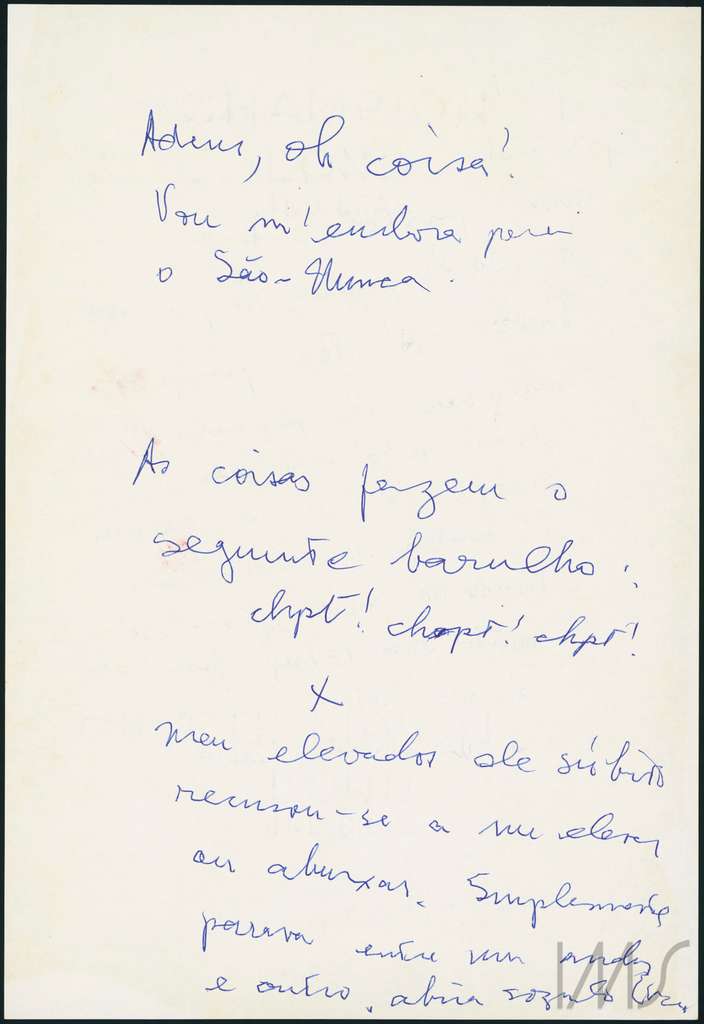 Adeus, oh coisa!
Vou m'embora para
o São-Nunca.
As coisas fazem o
seguinte barulho:
chpt! chopt! chpt!
x
meu elevador de súbito
recusou-se a me elevar
ou abaixar. Simplesmente
parava entre um andar
e outro, abria sozinho
IMS